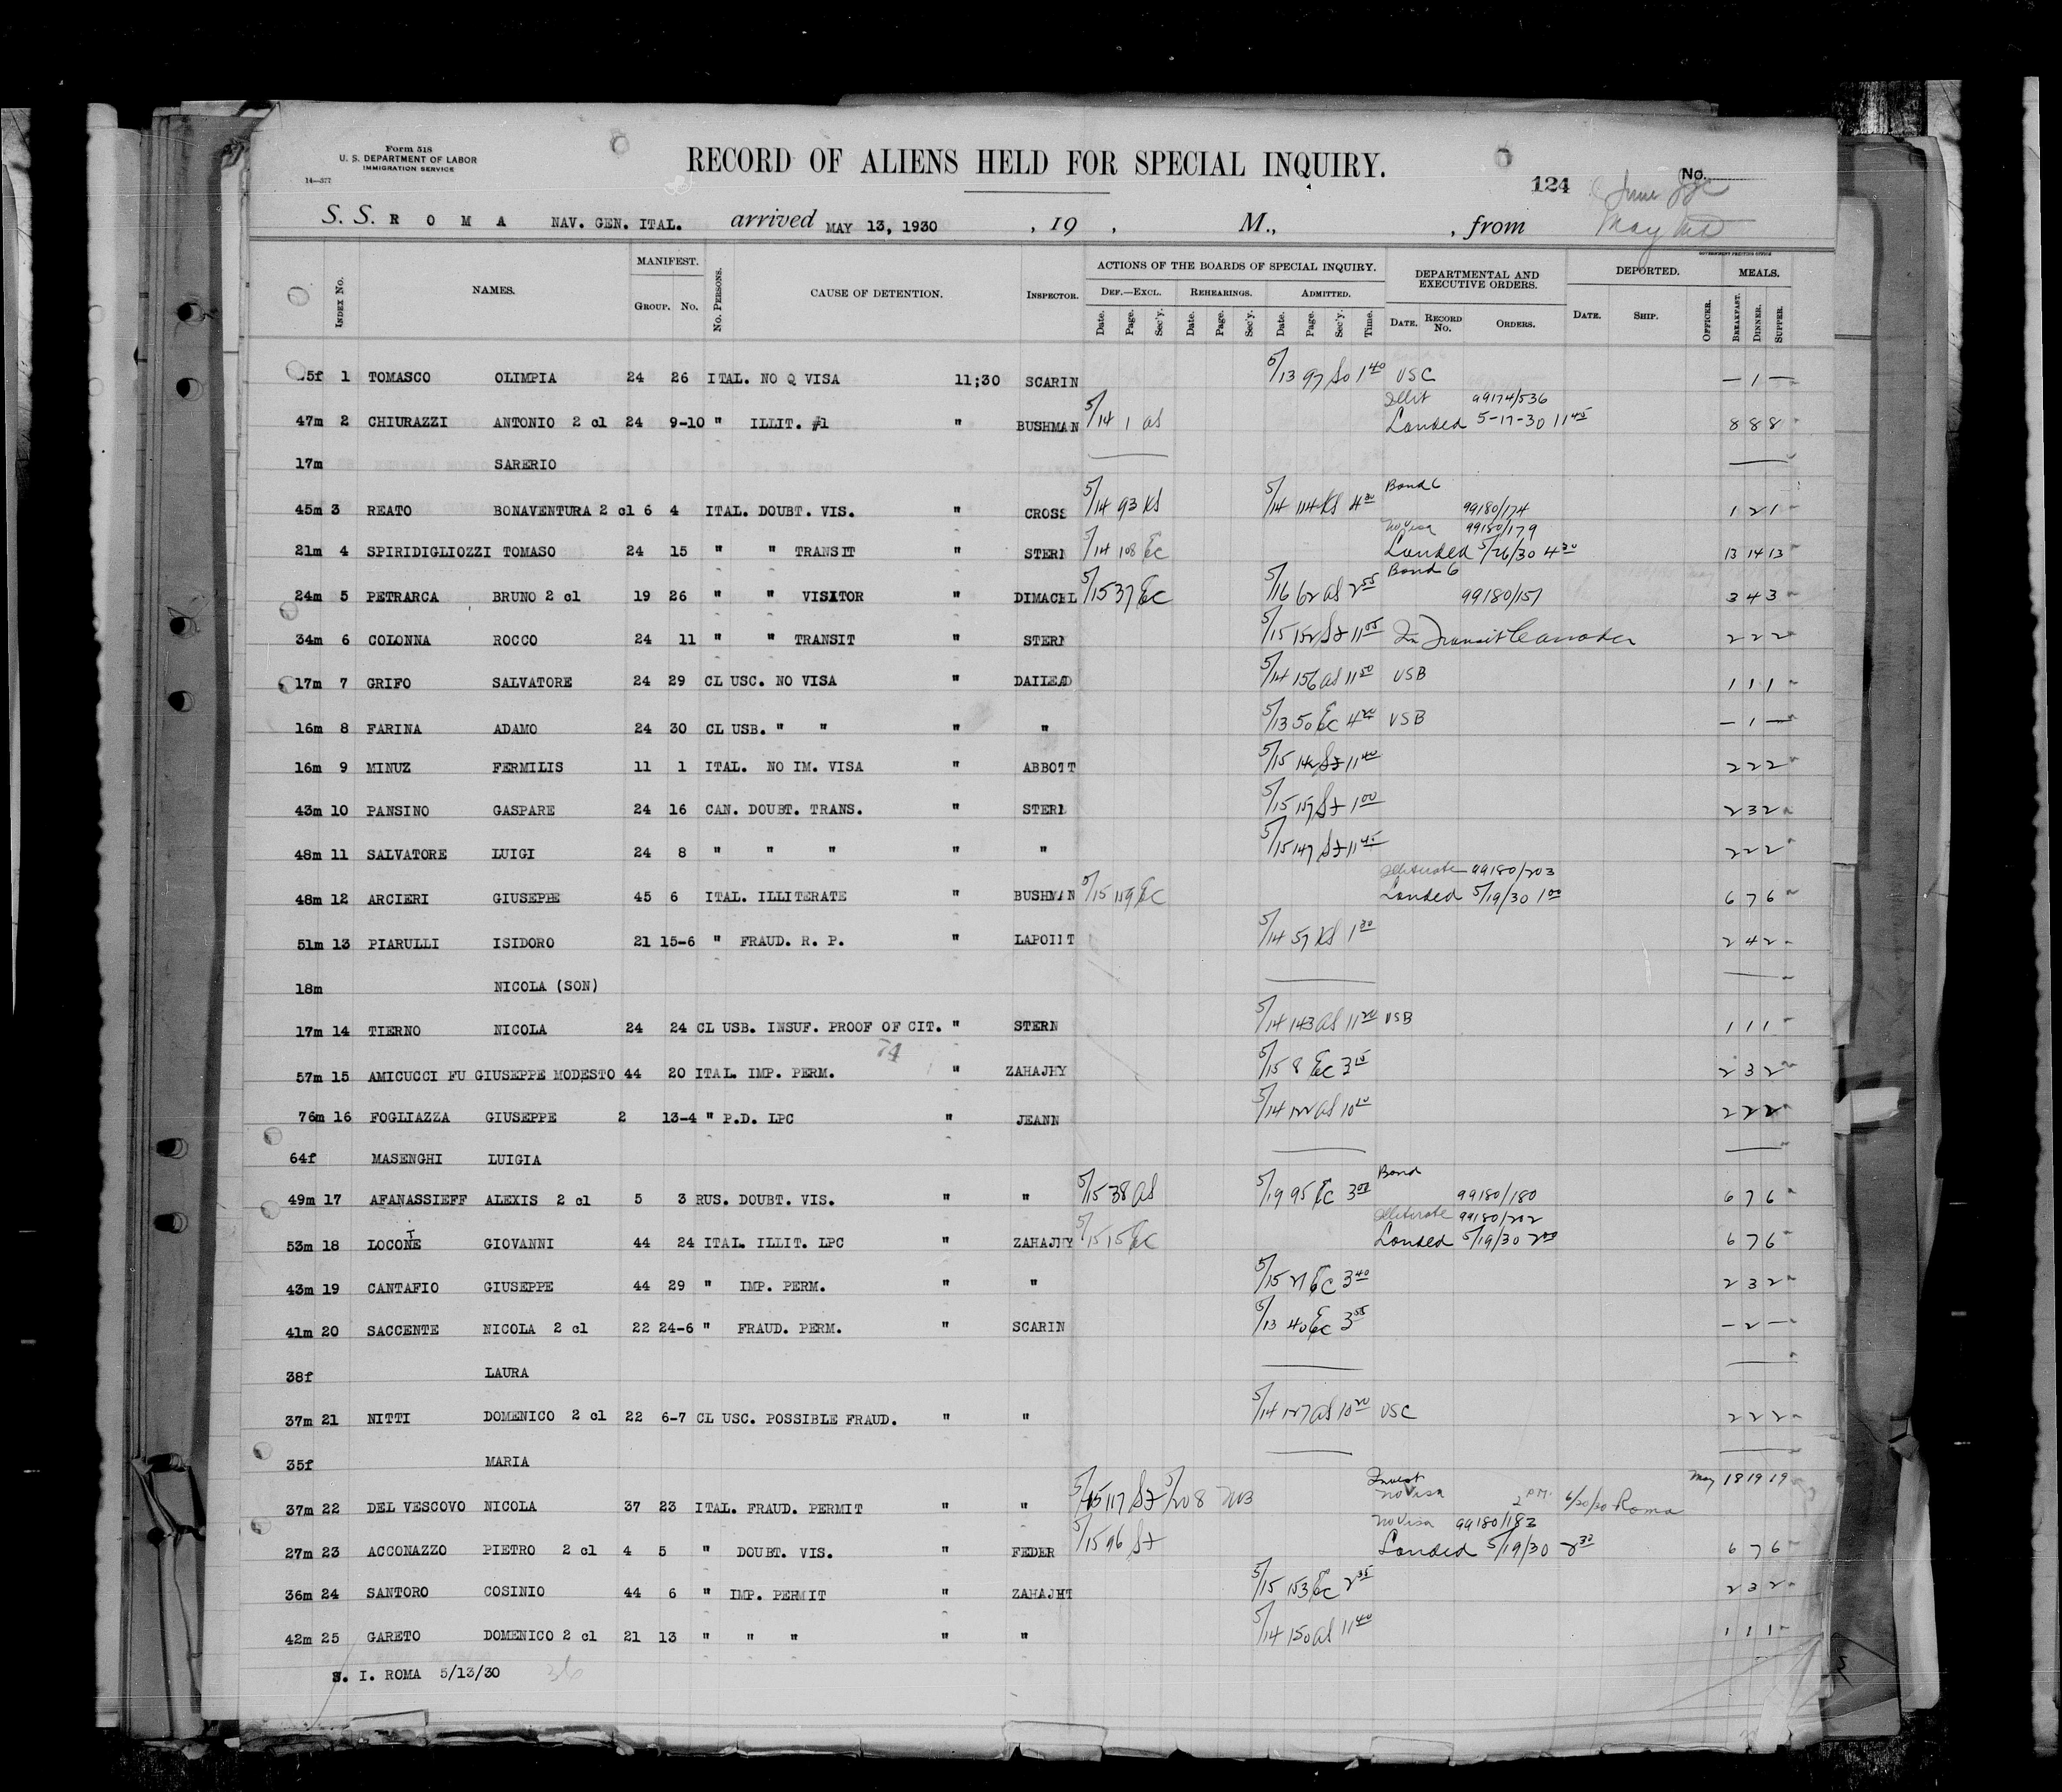 Form 518
U. S. DEPARTMENT OF LABOR
IMMIGRATION SERVICE
14—377
RECORD OF ALIENS HELD FOR SPECIAL INQUIRY.
124 No.
S. S. ROMA NAV. GEN. ITAL. arrived MAY 13, 1930 , 19 , M., , from
GOVERNMENT PRINTING OFFICE
INDEX No. NAMES. MANIFEST. GROUP. No. No. PERSONS. CAUSE OF DETENTION. INSPECTOR. ACTIONS OF THE BOARDS OF SPECIAL INQUIRY. DEPARTMENTAL AND EXECUTIVE ORDERS. DEPORTED. MEALS.
DEF.—EXCL. REHEARINGS. ADMITTED.
Date. Page. Sec'y. Date. Page. Sec'y. Date. Page. Sec'y. Time. DATE. RECORD No. ORDERS. DATE. SHIP. OFFICER. BREAKFAST. DINNER. SUPPER.
5f 1 TOMASCO OLIMPIA 24 26 ITAL. NO Q VISA 11;30 SCARIN 5/13 97 So 1 40 USC — 1 —
Illit 99174/536
47m 2 CHIURAZZI ANTONIO 2 cl 24 9-10 " ILLIT. #1 " BUSHMAN 5/14 1 as Landed 5-17-30 11 45 8 8 8
17m SARERIO
Bond 6
45m 3 REATO BONAVENTURA 2 cl 6 4 ITAL. DOUBT. VIS. " CROSS 5/14 93 KS 5/14 114 KS 4 30 99180/174 1 2 1
No Visa 99180/179
21m 4 SPIRIDIGLIOZZI TOMASO 24 15 " " TRANSIT " STERN 5/14 108 Ec Landed 5/26/30 4 30 13 14 13
Bond 6
24m 5 PETRARCA BRUNO 2 cl 19 26 " " VISITOR " DIMACEL 5/15 37 Ec 5/16 62 as 2 55 99180/157 3 4 3
34m 6 COLONNA ROCCO 24 11 " " TRANSIT " STERN 5/15 152 St 11 55 In Transit Canada 2 2 2
17m 7 GRIFO SALVATORE 24 29 CL USC. NO VISA " DAILEAD 5/14 156 as 11 50 USB 1 1 1
16m 8 FARINA ADAMO 24 30 CL USB. " " " " 5/13 50 Ec 4 20 USB — 1 —
16m 9 MINUZ FERMILIS 11 1 ITAL. NO IM. VISA " ABBOTT 5/15 142 St 11 40 2 2 2
43m 10 PANSINO GASPARE 24 16 CAN. DOUBT. TRANS. " STERN 5/15 157 St 1 00 2 3 2
48m 11 SALVATORE LUIGI 24 8 " " " " " 5/15 147 St 11 45 2 2 2
Illiterate 99180/203
48m 12 ARCIERI GIUSEPPE 45 6 ITAL. ILLITERATE " BUSHMAN 5/15 119 Ec Landed 5/19/30 1 00 6 7 6
51m 13 PIARULLI ISIDORO 21 15-6 " FRAUD. R. P. " LAPOINT 5/14 57 KS 1 30 2 4 2
18m NICOLA (SON)
17m 14 TIERNO NICOLA 24 24 CL USB. INSUF. PROOF OF CIT. " STERN 5/14 143 as 11 20 USB 1 1 1
74
57m 15 AMICUCCI FU GIUSEPPE MODESTO 44 20 ITAL. IMP. PERM. " ZAHAJHY 5/15 8 Ec 3 15 2 3 2
76m 16 FOGLIAZZA GIUSEPPE 2 13-4 " P.D. LPC " JEANN 5/14 122 as 10 10 2 2 2
64f MASENGHI LUIGIA
Bond
49m 17 AFANASSIEFF ALEXIS 2 cl 5 3 RUS. DOUBT. VIS. " " 5/15 38 as 5/19 95 Ec 3 02 99180/180 6 7 6
Illiterate 99180/202
53m 18 LOCONTE GIOVANNI 44 24 ITAL. ILLIT. LPC " ZAHAJHY 5/15 15 Ec Landed 5/19/30 2 00 6 7 6
43m 19 CANTAFIO GIUSEPPE 44 29 " IMP. PERM. " " 5/15 21 Ec 3 40 2 3 2
41m 20 SACCENTE NICOLA 2 cl 22 24-6 " FRAUD. PERM. " SCARIN 5/13 40 Ec 3 55 — 2 —
38f LAURA
37m 21 NITTI DOMENICO 2 cl 22 6-7 CL USC. POSSIBLE FRAUD. " " 5/14 127 as 10 20 USC 2 2 2
35f MARIA
May 18 19 19
No Visa
37m 22 DEL VESCOVO NICOLA 37 23 ITAL. FRAUD. PERMIT " " 5/15 117 St 5/20 8 2 P.M. 6/20/30 Roma
No Visa 99180/183
27m 23 ACCONAZZO PIETRO 2 cl 4 5 " DOUBT. VIS. " FEDER 5/15 96 St Landed 5/19/30 2 32 6 7 6
36m 24 SANTORO COSINIO 44 6 " IMP. PERMIT " ZAHAJHT 5/15 153 Ec 2 35 2 3 2
42m 25 GARETO DOMENICO 2 cl 21 13 " " " " " 5/14 150 as 11 40 1 1 1
S. I. ROMA 5/13/30 36